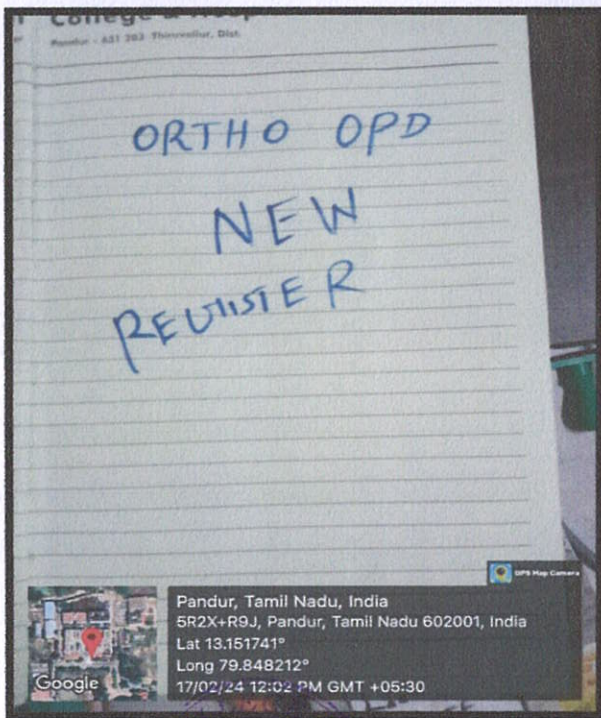 College & Hosp
Pandur - 631 203 Thiruvallur, Dist.
ORTHO OPD
NEW
REGISTER
GPS Map Camera
Google
Pandur, Tamil Nadu, India
5R2X+R9J, Pandur, Tamil Nadu 602001, India
Lat 13.151741°
Long 79.848212°
17/02/24 12:02 PM GMT +05:30